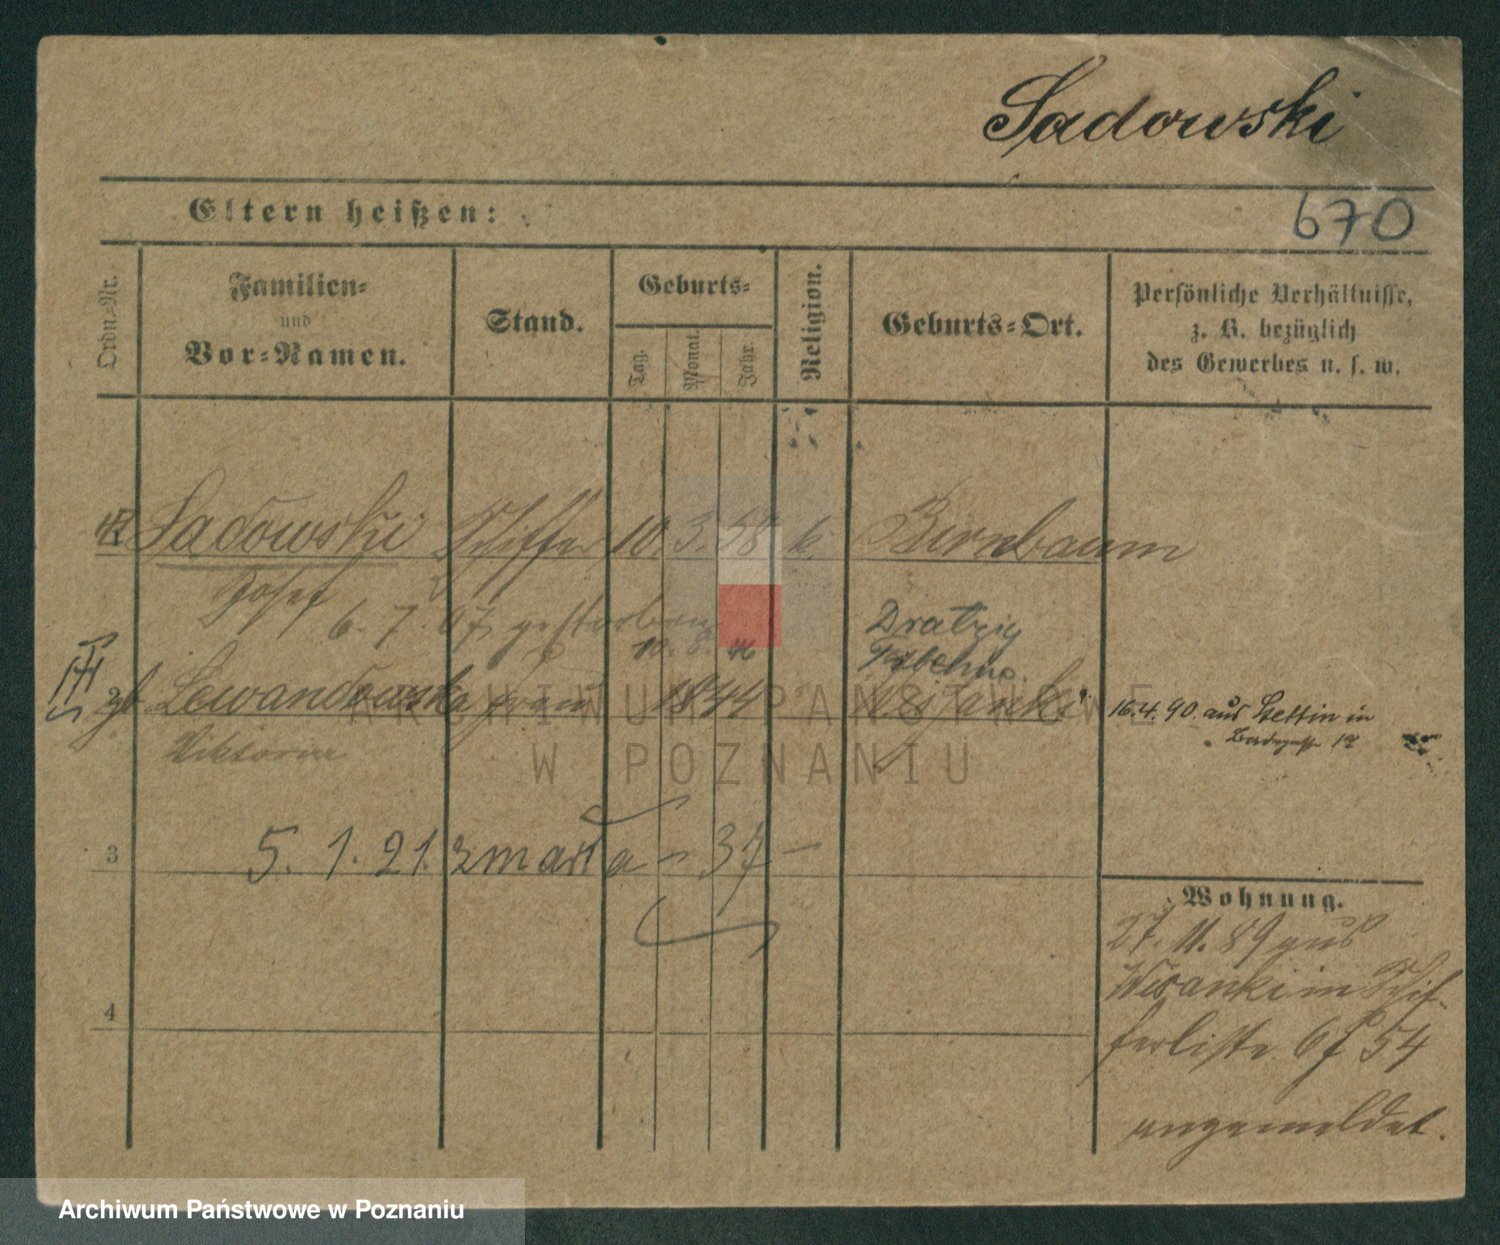 Sadowski
670
Eltern heißen:
Ordn.-Nr.
Familien-
und
Vor-Namen.
Stand.
Geburts-
Tag.
Monat.
Jahr.
Religion.
Geburts-Ort.
Persönliche Verhältnisse,
z. B. bezüglich
des Gewerbes u. s. w.
Sadowski Schiffer 10. 3. 58 k. Birnbaum
Josef
6. 7. 07 gestorben
10. 8. 46
Dratzig
Filehne.
2 Lewandowska Frau 1844
Viktoria
16.4.90. aus Stettin in
5. 1. 21. zmarła - 37 -
3
Wohnung.
27. 11. 89 aus
Wronki in Schif-
ferliste 6 f 54
angemeldet.
4
ARCHIWUM PAŃSTWOWE
W POZNANIU
Archiwum Państwowe w Poznaniu